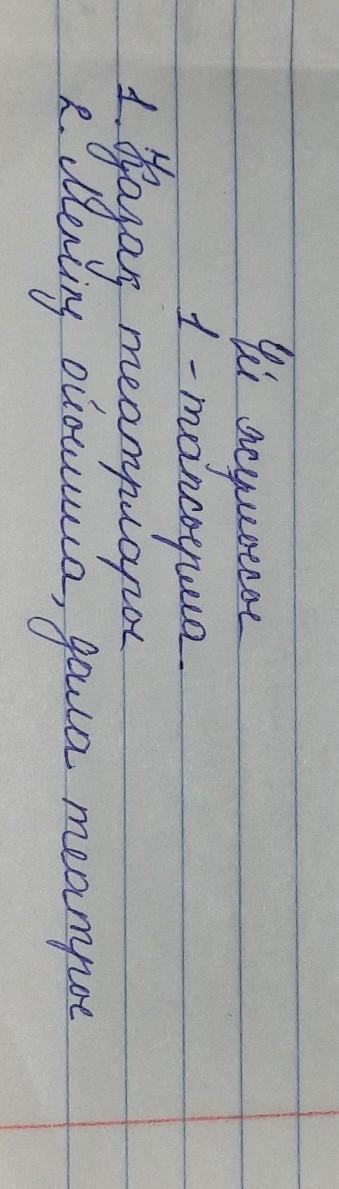 Үй жұмысы
1 - тапсырма.
1. Қазақ театрлары
2. Менің ойымша, дала театры